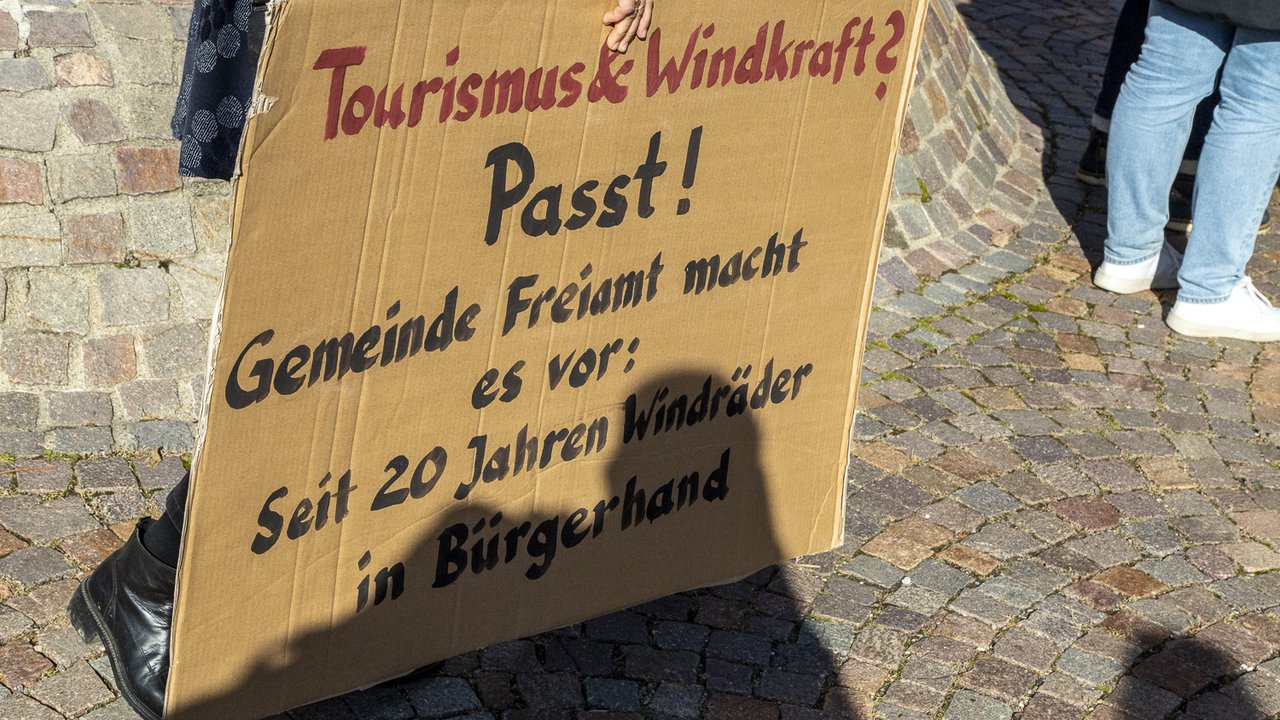 Tourismus & Windkraft?
Passt!
Gemeinde Freiamt macht
es vor:
Seit 20 Jahren Windräder
in Bürgerhand